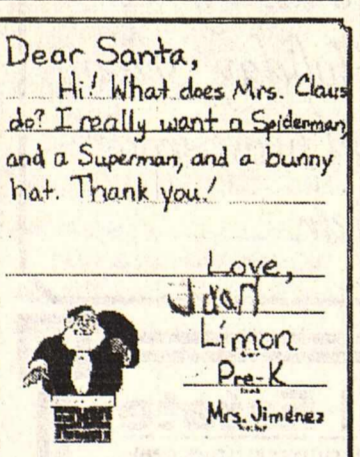 Dear Santa,
Hi! What does Mrs. Claus
do? I really want a Spiderman,
and a Superman, and a bunny
hat. Thank you!
Love,
Juan
Limon
Pre-K
Mrs. Jiménez